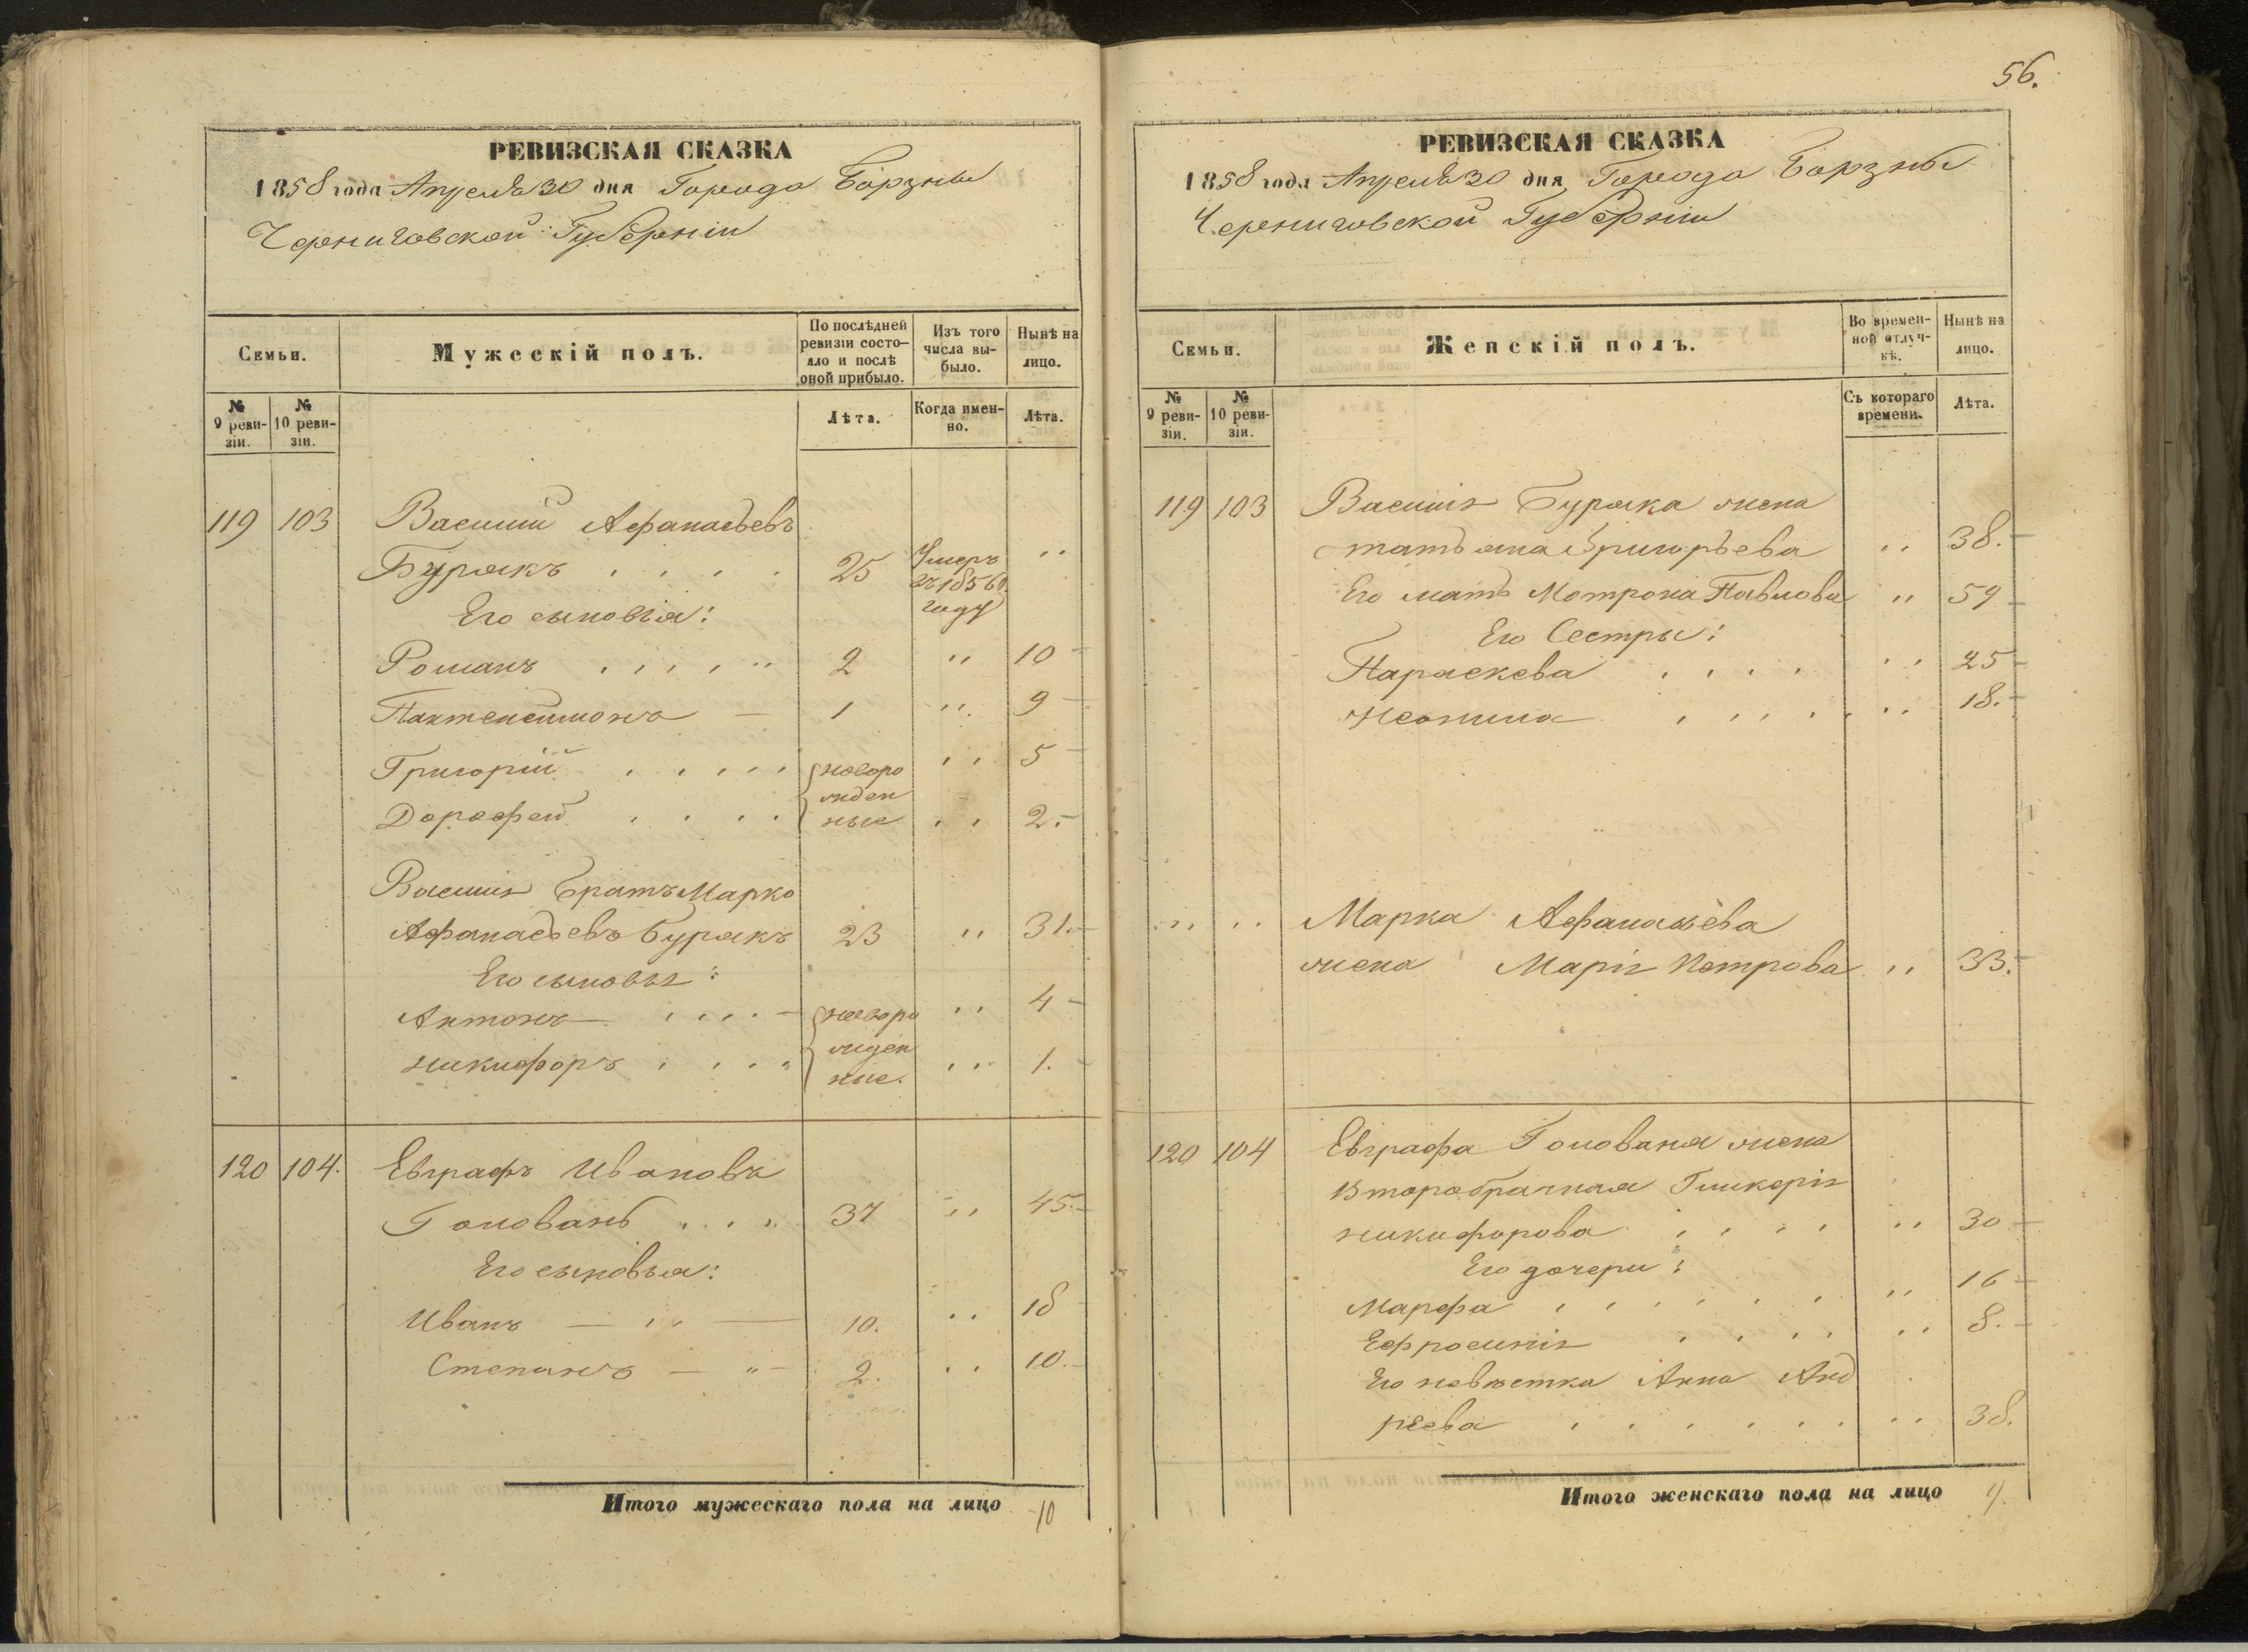 РЕВИЗСКАЯ СКАЗКА
1858 года Апреля 30 дня Города Борзны
Черниговской Губерніи
Семьи.
Мужескій полъ.
По послѣдней ревизіи состояло и послѣ оной прибыло.
Изъ того числа выбыло.
Нынѣ на лицо.
№ 9 ревизіи.
№ 10 ревизіи.
Лѣта.
Когда именно.
Лѣта.
119 103 Василий Афанасьевъ
Бурякъ . . . . 25 Умеръ въ 1856 году "
Его сыновья:
Романъ . . . . " 2 " 10
Пантелеимонъ — 1 " 9
Григорій . . . . . новорожденные " 5
Дорофей . . . . " 2.
Василія братъ Марко
Афанасьевъ Бурякъ 23 " 31.
Его сыновья:
Антонъ . . . . новорожденные " 4
Никифоръ . . . " " 1.
120 104. Евграфъ Ивановъ
Головань . . . " 37 " 45.
Его сыновья:
Иванъ — " — 10. " 18
Степанъ — " — 2. " 10.
Итого мужескаго пола на лицо 10
56.
РЕВИЗСКАЯ СКАЗКА
1858 года Апреля 30 дня Города Борзны
Черниговской Губерніи
Семьи.
Женскій полъ.
Во временной отлучкѣ.
Нынѣ на лицо.
№ 9 ревизіи.
№ 10 ревизіи.
Съ котораго времени.
Лѣта.
119 103 Василія Буряка жена
Татьяна Григорьева " 38.
Его мать Мотрона Павлова " 59
Его Сестры:
Параскева . . . . " 25
Неонила . . . . . " 18.
" " Марка Афанасьева
жена Марія Петрова " 33.
120 104 Евграфа Голованя жена
второбрачная Гликерія
Никифорова . . . . " 30
Его дочери:
Марфа . . . . . . " 16
Ефросинія . . . . " 8.
Его невѣстка Анна Анд
реева . . . . . . " 38.
Итого женскаго пола на лицо 9.